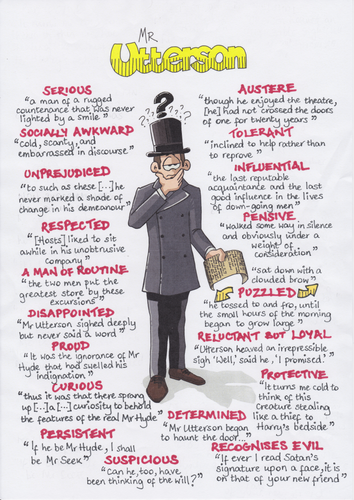 Mr
Utterson
SERIOUS
"a man of a rugged
countenance that was never
lighted by a smile"
SOCIALLY AWKWARD
"cold, scanty, and
embarrassed in discourse"
UNPREJUDICED
"to such as these [...] he
never marked a shade of
change in his demeanour"
RESPECTED
"[Hosts] liked to sit
awhile in his unobtrusive
company"
A MAN OF ROUTINE
"the two men put the
greatest store by these
excursions"
DISAPPOINTED
"Mr Utterson sighed deeply
but never said a word"
PROUD
"It was the ignorance of Mr
Hyde that had swelled his
indignation"
CURIOUS
"thus it was that there sprang
up [...] a [...] curiosity to behold
the features of the real Mr Hyde"
PERSISTENT
"If he be Mr Hyde, I shall
be Mr Seek"
SUSPICIOUS
"Can he, too, have
been thinking of the will?"
???????
AUSTERE
"though he enjoyed the theatre,
[he] had not crossed the doors
of one for twenty years"
TOLERANT
"inclined to help rather than
to reprove"
INFLUENTIAL
"the last reputable
acquaintance and the last
good influence in the lives
of down-going men"
PENSIVE
"walked some way in silence
and obviously under a
weight of
consideration"
"sat down with a
clouded brow"
PUZZLED
"he tossed to and fro, until the
small hours of the morning
began to grow large"
RELUCTANT BUT LOYAL
"Utterson heaved an irrepressible
sigh 'Well,' said he, 'I promised.'"
PROTECTIVE
"It turns me cold to
think of this
Creature stealing
like a thief to
Harry's bedside"
DETERMINED
"Mr Utterson began
to haunt the door..."
RECOGNISES EVIL
"If ever I read Satan's
signature upon a face, it is on
that of your new friend"